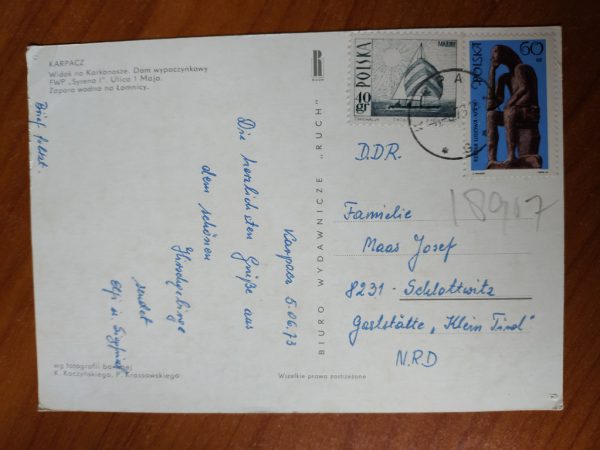 KARPACZ
Widok na Karkonosze. Dom wypoczynkowy
FWP „Syrena I”. Ulica 1 Maja.
Zapora wodna na Łomnicy.
Brief folgt.
Karpacz 5.06.73
Die herzlichsten Grüße aus
dem schönen
sendet
wg fotografii barwnej
K. Kaczyńskiego, P. Krassowskiego
BIURO WYDAWNICZE „RUCH”
R
Wszelkie prawa zastrzeżone
POLSKA
40 gr
POLSKA
60
D.D.R.
Familie
Maas Josef
8231 - Schlottwitz
Gaststätte „Klein Tirol”
N.R.D
18907